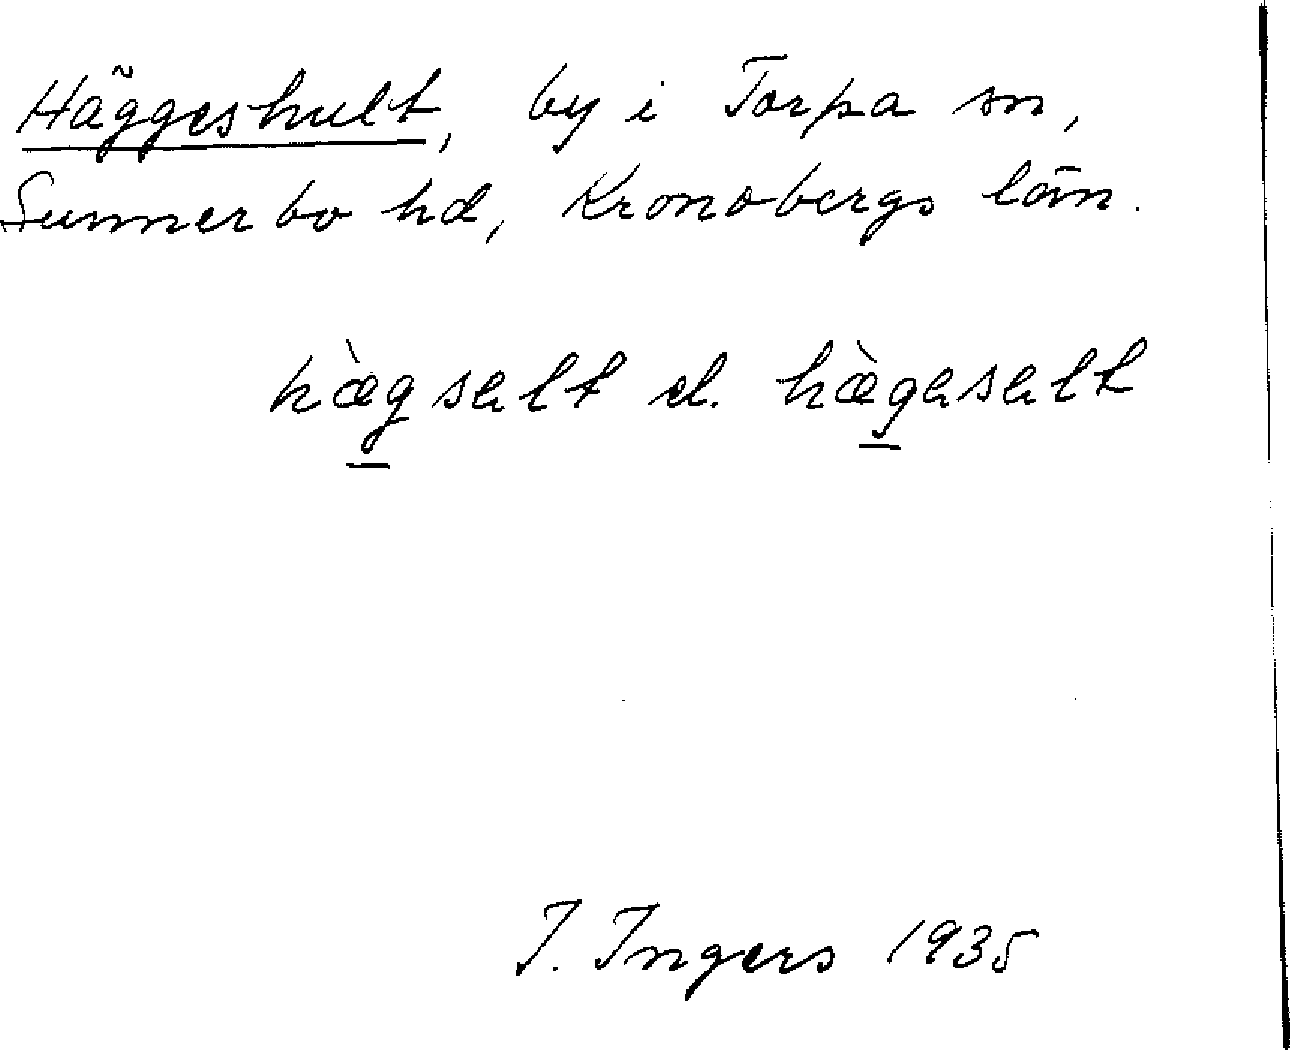 Häggeshult, by i Torpa sn,
Sunnerbo hd, Kronobergs län.
hæ̀gsalt el. hæ̀gasalt
I. Ingers 1935